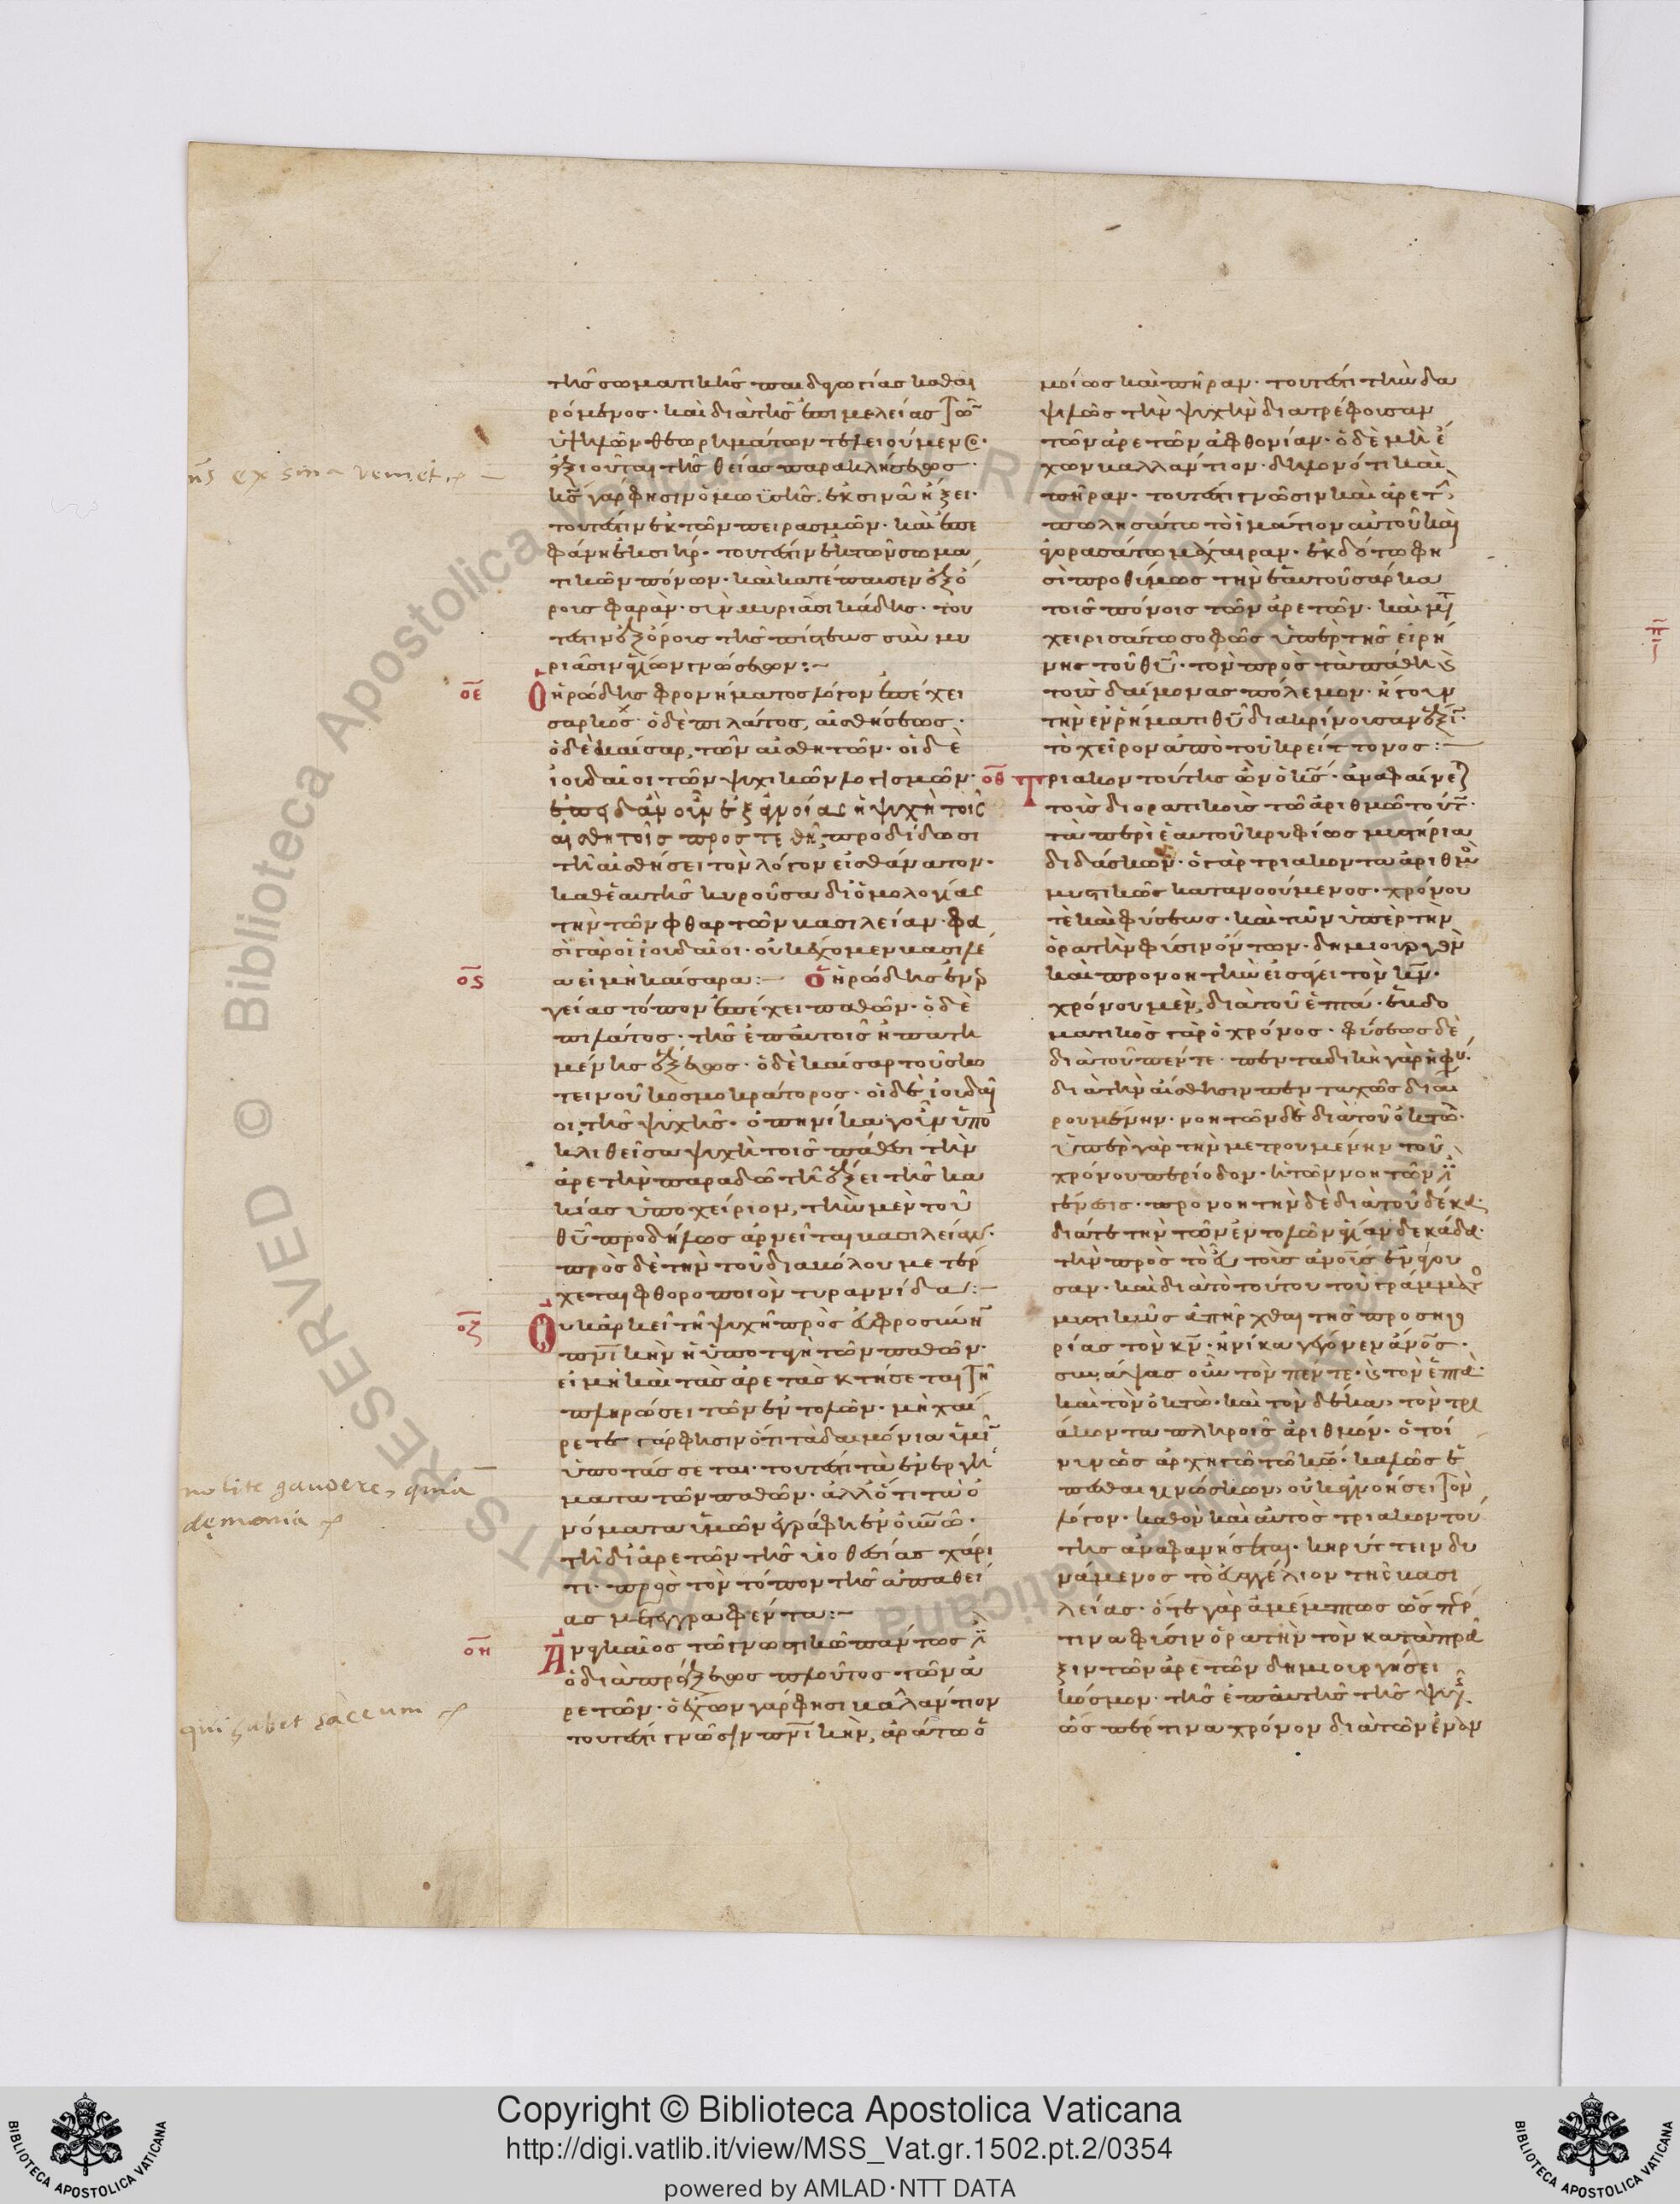 τῆς σωματικῆς παιδαγωγίας καθαι
ρόμενος· καὶ διὰ τῆς ἐπιμελείας τῶν
ὑψηλῶν θεωρημάτων τελειούμενος·
ἀξιοῦται τῆς θείας παρακλήσεως·
κς γάρ φησιν ὁ μωϋσῆς, ἐκ σινᾶ ἥξει·
τουτέστιν ἐκ τῶν πειρασμῶν· καὶ ἐπε
φάνη ἐκ σιήρ· τουτέστιν ἐκ τῶν σωμα
τικῶν πόνων· καὶ κατέπαυσεν ἐξ ὄ
ρους φαρὰν· σὺν μυριάσι κάδης· του
τέστιν ἐξ ὄρους τῆς πίστεως σὺν μυ
ριάσιν ἁγίων γνώσεων:~
οε
Ὁ ἡρώδης φρονήματος λόγον ἐπέχει
σαρκός· ὁ δὲ πιλάτος, αἰσθήσεως·
ὁ δὲ καίσαρ, τῶν αἰσθητῶν· οἱ δὲ
ἰουδαῖοι τῶν ψυχικῶν λογισμῶν·
ἐπειδὰν οὖν ἐξ ἀγνοίας ἡ ψυχὴ τοῖς
αἰσθητοῖς προστεθῇ, προδίδωσι
τῇ αἰσθήσει τὸν λόγον εἰς θάνατον·
καθ' ἑαυτῆς κυροῦσα δι' ὁμολογίας
τὴν τῶν φθαρτῶν βασιλείαν· φα
σὶ γὰρ οἱ ἰουδαῖοι· οὐκ ἔχομεν βασιλέ
α εἰ μὴ καίσαρα:—
ος
Ὁ ἡρώδης ἐνερ
γείας τόπον ἐπέχει παθῶν· ὁ δὲ
πιλάτος· τῆς ἐπ' αὐτοῖς ἠπατη
μένης ἕξεως· ὁ δὲ καίσαρ τοῦ σκο
τεινοῦ κοσμοκράτορος· οἱ δὲ ἰουδαῖ
οι, τῆς ψυχῆς· ὁπηνίκα γοῦν ὑπο
κλιθεῖσα ψυχὴ τοῖς πάθεσι τὴν
ἀρετὴν παραδῷ τῇ ἕξει τῆς κα
κίας ὑποχείριον, τὴν μὲν τοῦ
θυ προδήλως ἀρνεῖται βασιλείαν·
πρὸς δὲ τὴν τοῦ διαβόλου μετέρ
χεται φθοροποιὸν τυραννίδα:—
οζ
Οὐκ ἀρκεῖ τῇ ψυχῇ πρὸς εὐφροσύνην
πνικὴν ἡ ὑποταγὴ τῶν παθῶν·
εἰ μὴ καὶ τὰς ἀρετὰς κτήσεται τῇ
πληρώσει τῶν ἐντολῶν· μὴ χαί
ρετε γάρ φησιν ὅτι τὰ δαιμόνια ὑμῖν
ὑποτάσσεται· τουτέστι τὰ ἐνεργή
ματα τῶν παθῶν· ἀλλ' ὅτι τὰ ὀ
νόματα ὑμῶν ἐγράφη ἐν οὐνῷ·
τῇ δι' ἀρετῶν τῆς υἱοθεσίας χάρι
τι· πρὸς τὸν τόπον τῆς ἀπαθεί
ας μετεγγραφέντα:—
οη
Ἀναγκαῖος τῷ γνωστικῷ πάντως ἐστὶν
ὁ διὰ πράξεως πλοῦτος τῶν ἀ
ρετῶν· ὁ ἔχων γάρ φησι βαλάντιον
τουτέστι γνῶσιν πνικὴν, ἀράτω ὁ
μοίως καὶ πήραν· τουτέστι τὴν δα
ψιλῶς τὴν ψυχὴν διατρέφουσαν
τῶν ἀρετῶν ἀφθονίαν· ὁ δὲ μὴ ἔ
χων βαλλάντιον· δηλονότι καὶ
πήραν· τουτέστι γνῶσιν καὶ ἀρετὴν
πωλησάτω τὸ ἱμάτιον αὐτοῦ καὶ
ἀγορασάτω μάχαιραν· ἐκδότω φη
σὶ προθύμως τὴν ἑαυτοῦ σάρκα
τοῖς πόνοις τῶν ἀρετῶν· καὶ με
χειρισάτω σοφῶς ὑπὲρ τῆς εἰρή
νης τοῦ θυ· τὸν πρὸς τὰ πάθη καὶ
τοὺς δαίμονας πόλεμον· ἤγουν
τὴν ἐν ῥήματι θυ διακρίνουσαν ἕξιν
τὸ χεῖρον ἀπὸ τοῦ κρείττονος:—
οθ
Τριακοντούτης ὢν ὁ κς· ἀναφαίνεται
τοὺς διορατικοὺς τῷ ἀριθμῷ τούτῳ
τὰ περὶ ἑαυτοῦ κρυφίως μυστήρια
διδάσκων· ὁ γὰρ τριάκοντα ἀριθμὸς
μυστικῶς κατανοούμενος· χρόνου
τὲ καὶ φύσεως· καὶ τῶν ὑπὲρ τὴν
ὁρατὴν φύσιν ὄντων· δημιουργὸν
καὶ προνοητὴν εἰσάγει τὸν κν·
χρόνου μὲν, διὰ τοῦ ἑπτά· ἑβδο
ματικὸς γὰρ ὁ χρόνος· φύσεως δὲ
διὰ τοῦ πέντε· πενταδικὴ γὰρ ἡ φύσις
διὰ τὴν αἴσθησιν πενταχῶς διαι
ρουμένην· νοητῶν δὲ διὰ τοῦ ὀκτώ·
ὑπὲρ γὰρ τὴν μετρουμένην τοῦ
χρόνου περίοδον· ἡ τῶν νοητῶν ἐστι
γένεσις· προνοητὴν δὲ διὰ τοῦ δέκα·
διά τε τὴν τῶν ἐντολῶν ἁγίαν δεκάδα·
τὴν πρὸς τὸ εὖ τοὺς ἀνους ἐνάγου
σαν· καὶ διὰ τὸ τούτου τοῦ γράμματος
μυστικῶς ἀπῆρχθαι τῆς προσηγο
ρίας τὸν κν· ἡνίκα γέγονεν ἀνος·
συνάψας οὖν τὸν πέντε· καὶ τὸν ἑπτὰ·
καὶ τὸν ὀκτὼ· καὶ τὸν δέκα, τὸν τρι
άκοντα πληροῖς ἀριθμόν· ὁ τοί
νυν ὡς ἀρχηγῷ τῷ κω· καλῶς ἕ
πεσθαι γινώσκων, οὐκ ἀγνοήσει τὸν
λόγον· καθ' ὃν καὶ αὐτὸς τριακοντού
της ἀναφανήσεται· κηρύττειν δυ
νάμενος τὸ εὐαγγέλιον τῆς βασι
λείας· ὅτε γὰρ ἀμέμπτως ὥσπερ
τινα φύσιν ὁρατὴν τὸν κατὰ πρᾶ
ξιν τῶν ἀρετῶν δημιουργήσει
κόσμον· τῆς ἐπ' αὐτῆς τῆς ψυχῆς
ὥσπερ τινα χρόνον διὰ τῶν ἐναν
ns ex sina veniet
nolite gaudere, quia
demonia
qui habet saccum
© Biblioteca Apostolica Vaticana ALL RIGHTS RESERVED
Copyright © Biblioteca Apostolica Vaticana
http://digi.vatlib.it/view/MSS_Vat.gr.1502.pt.2/0354
powered by AMLAD·NTT DATA
BIBLIOTECA APOSTOLICA VATICANA
BIBLIOTECA APOSTOLICA VATICANA